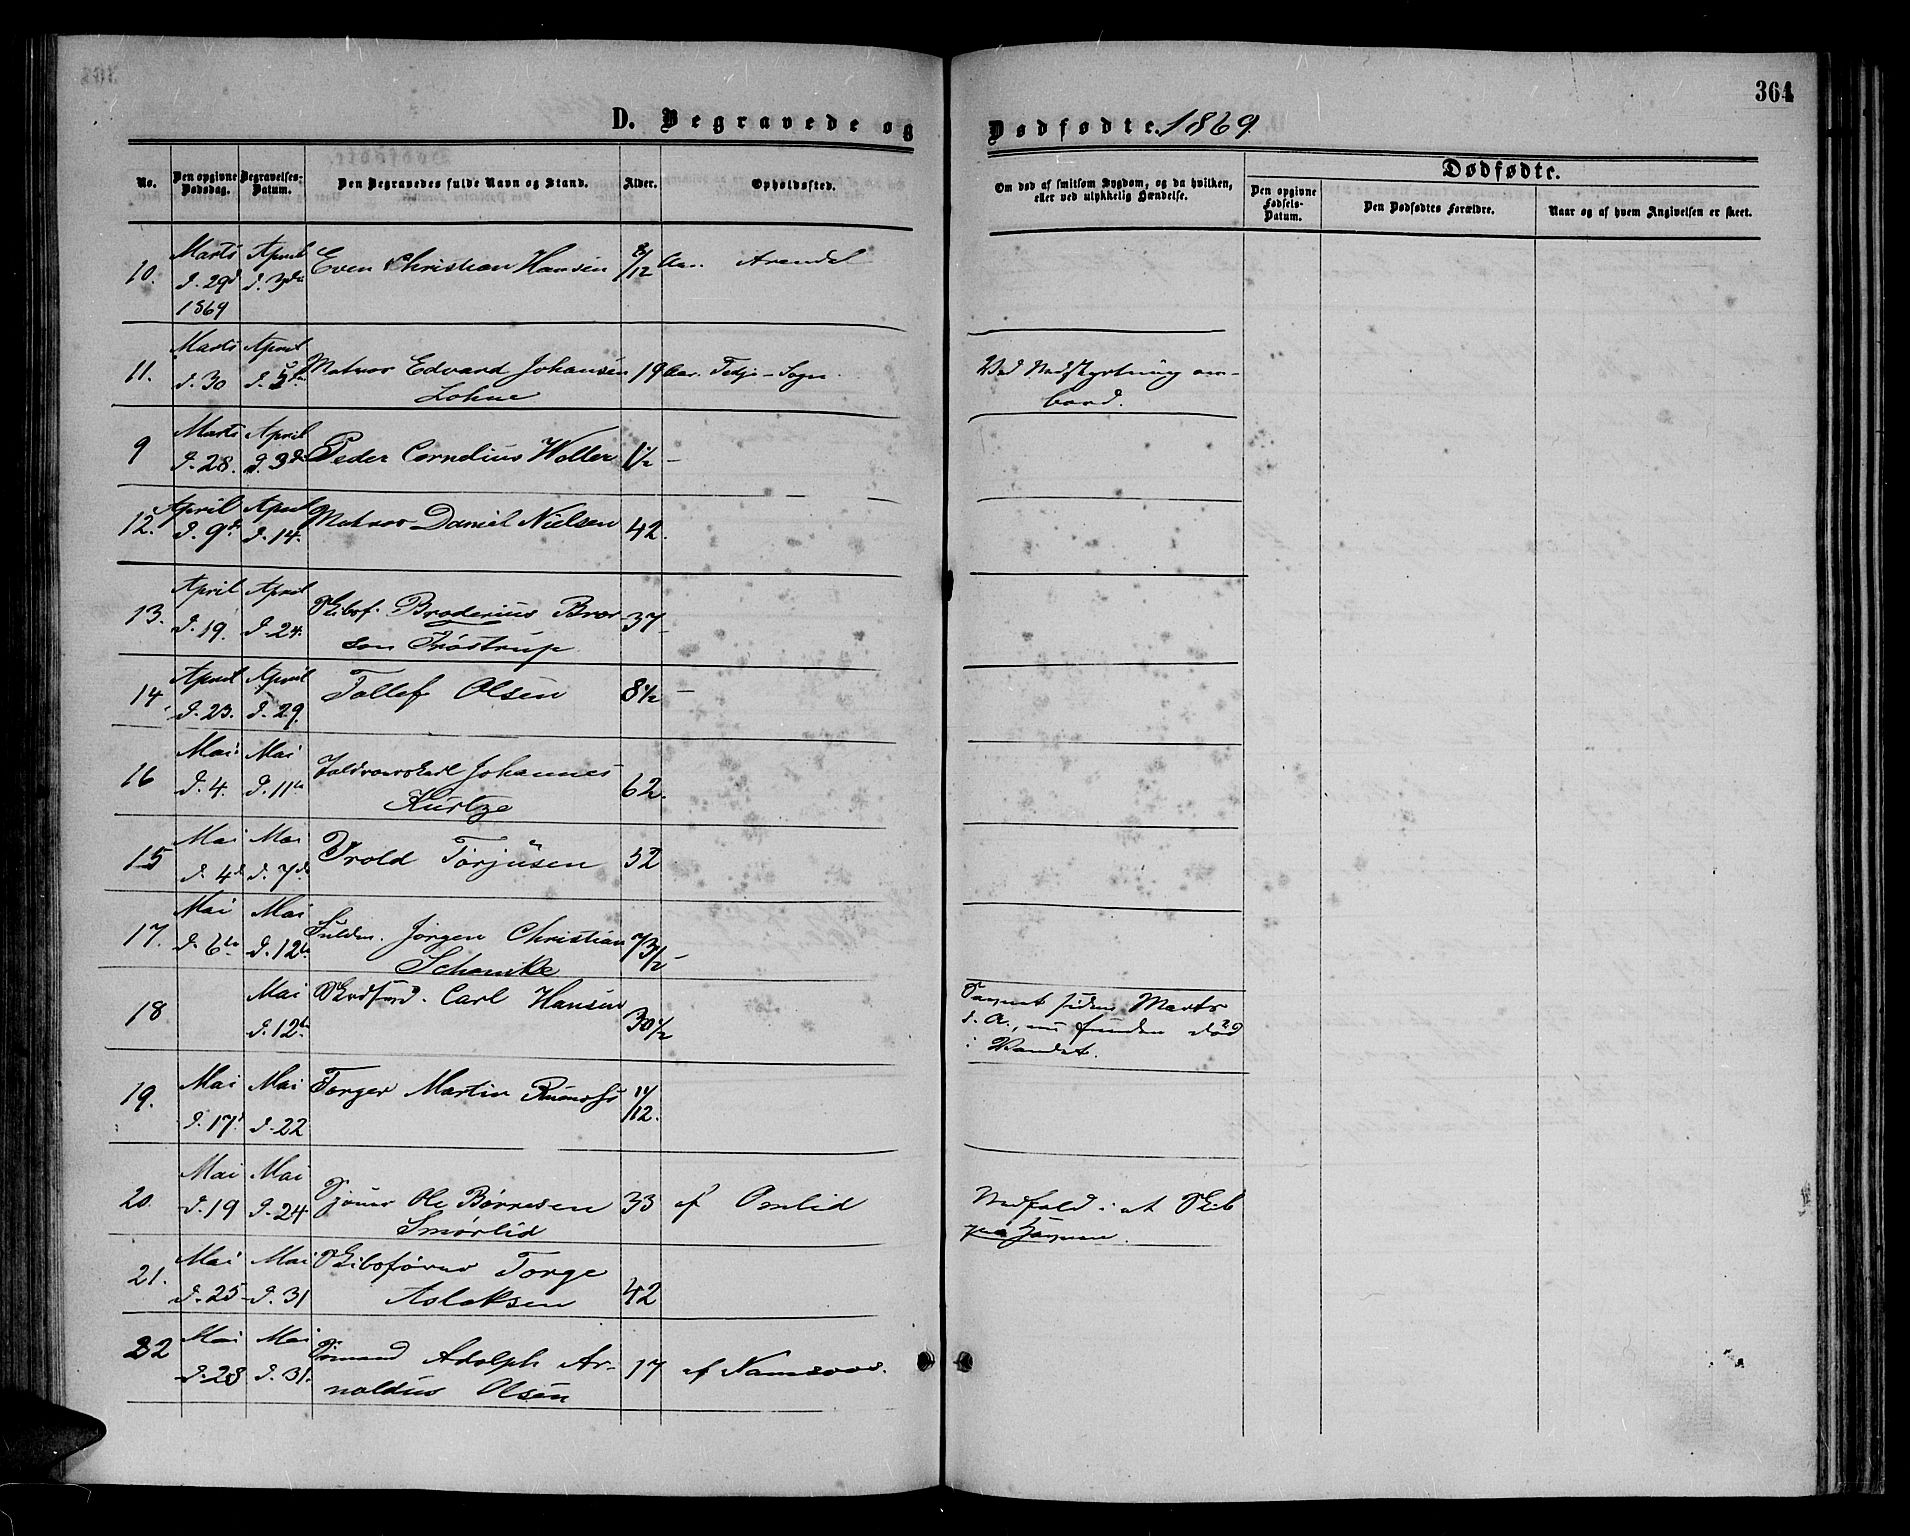 364
D. Begravede og Dødfødte. 1869.
No. Den opgivne Dødsdag. Begravelses-Datum. Den Begravedes fulde Navn og Stand. Alder. Opholdssted. Om død af smitsom Sygdom, og da hvilken, eller ved ulykkelig Hændelse.
Dødfødte.
Den opgivne Fødsels-Datum. Den Dødfødtes Forældre. Naar og af hvem Angivelsen er skeet.
10. Marts April Even Christian Hansen 8/12 Aar. Arendal
d. 29d d. 3die
1869
11. Marts April Matros Edvard Johansen 19 Aar. Sogn.
d. 30 d. 5te Lohne
Ved Nedstyrtning om-
bord.
9 Marts April Peder Cornelius Woller 1½ —
d. 28. d. 3d
12. April April Matros Daniel Nielsen 42.
d. 9d. d. 14.
13. April April Skibsf. Broderius Bror- 37
d. 19. d. 24. son Trøstrup
14 April April Tollef Olsen 8½ —
d. 23. d. 29.
16 Mai Mai Johannes 62.
d. 4. d. 11te Kurtze
15 Mai Mai Trold Torjusen 52
d. 4d d. 7d
17. Mai Mai Fuldm. Jørgen Christian 73½
d. 6te d. 12te Schanke
18 Mai Carl Hansen 30½
d. 12te
Savnet siden Marts
d. A., nu funden død
i Vandet.
19. Mai Mai Torger Martin 11/12.
d. 17d d. 22
20. Mai Mai Ole Børresen 33 af Omlid
d. 19 d. 24 Smørlid
Nedfald i et Skib
paa Havnen.
21. Mai Mai Skibsfører Torge
d. 25 d. 31 Aslaksen 42
22 Mai Mai Sømand Adolph Ar- 17 af Namsoos.
d. 28 d. 31. noldus Olsen